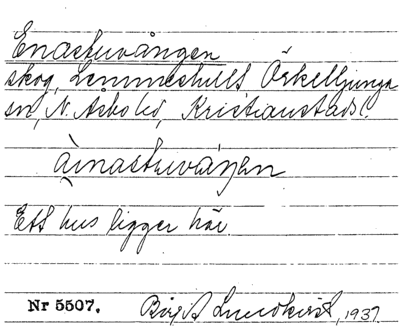 Enastuvången
skog, Lemmeshults Örkelljunga
sn, N. Åsbo hd, Kristianstads l.
änastuvåŋen
Ett hus ligger här
Nr 5507. Birgit Lundkvist, 1937.